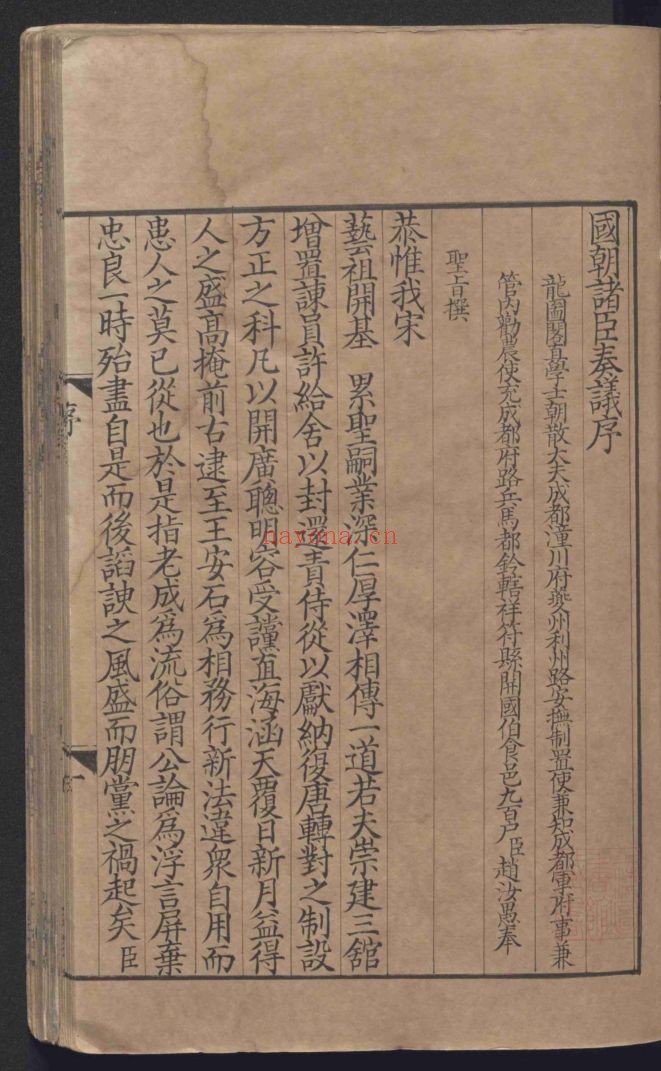 國朝諸臣奏議序
龍圖閣直學士朝散大夫成都潼川府夔州利州路安撫制置使兼知成都軍府事兼
管内勸農使充成都府路兵馬都鈐轄祥符縣開國伯食邑九百户臣趙汝愚奉
聖旨撰
恭惟我宋
藝祖開基　累聖嗣業深仁厚澤相傳一道若夫崇建三舘
增置諫員許給舍以封還責侍從以獻納復唐轉對之制設
方正之科凡以開廣聰明容受讜直海涵天覆日新月益得
人之盛高掩前古逮至王安石爲相務行新法違衆自用而
患人之莫已從也於是指老成爲流俗謂公論爲浮言屏棄
忠良一時殆盡自是而後謟諛之風盛而朋黨之禍起矣臣
序
一
nayona.cn